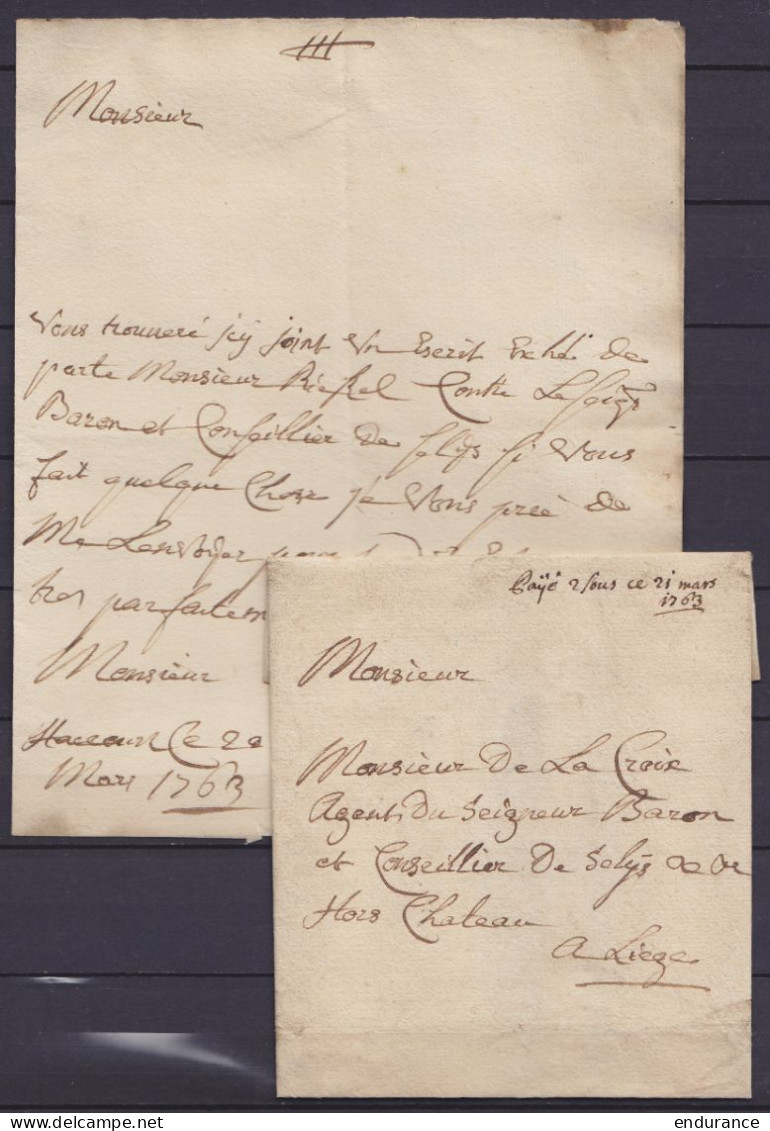 Monsieur
Vous trouveré j'cÿ joint Un Escrit Exhé de
parte Monsieur Contre Le seigr
Baron et Conseillier De selys si Vous
fait quelque Chose je Vous prié de
Me L'envoÿer
tres parfaitem
Monsieur
Haccourt Ce 20
Mars 1763
Païé 2 sous ce 21 mars
1763
Monsieur
Monsieur De La Croix
Agent Du Seigneur Baron
et Conseillier De Selÿs
Hors Chateau
A Liege
endurance